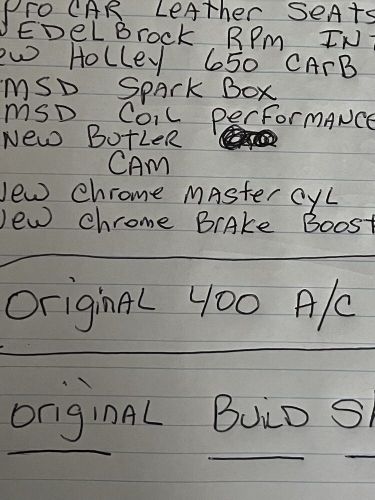 Pro CAR Leather Seats
EDELBrock RPM INT
ew Holley 650 CARB
MSD Spark Box
MSD Coil performance
New Butler
CAM
New Chrome Master cyl
New Chrome Brake Boost
Original 400 A/C
Original Build S